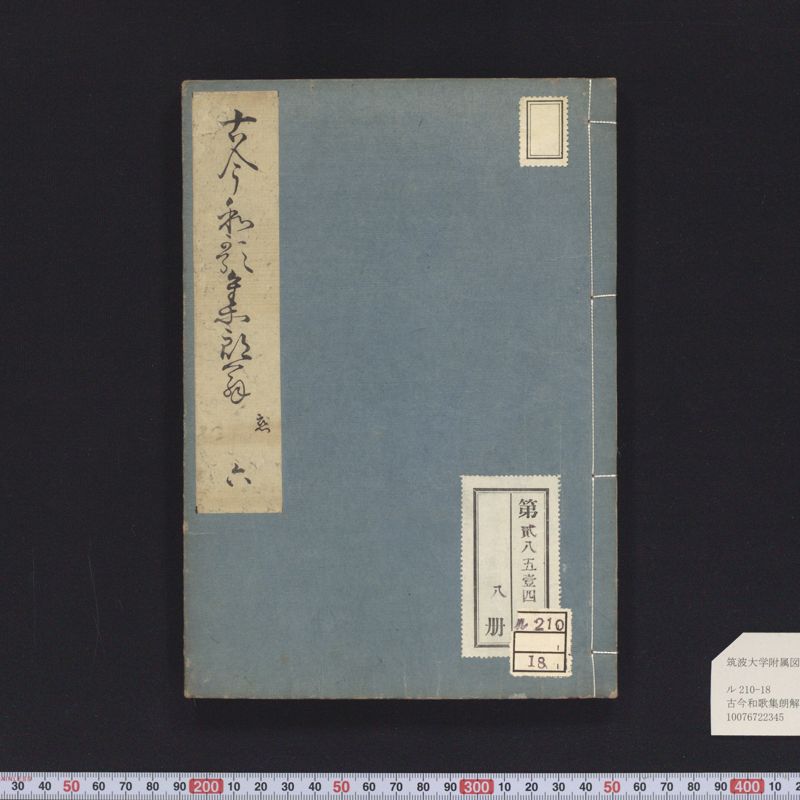 古今和歌集朗解
恋
六
第貳八五壹四
八
册
ル210
18
筑波大学附属図
ル 210-18
古今和歌集朗解
10076722345
30 40 50 60 70 80 90 200 10 20 30 40 50 60 70 80 90 300 10 20 30 40 50 60 70 80 90 400 10 2